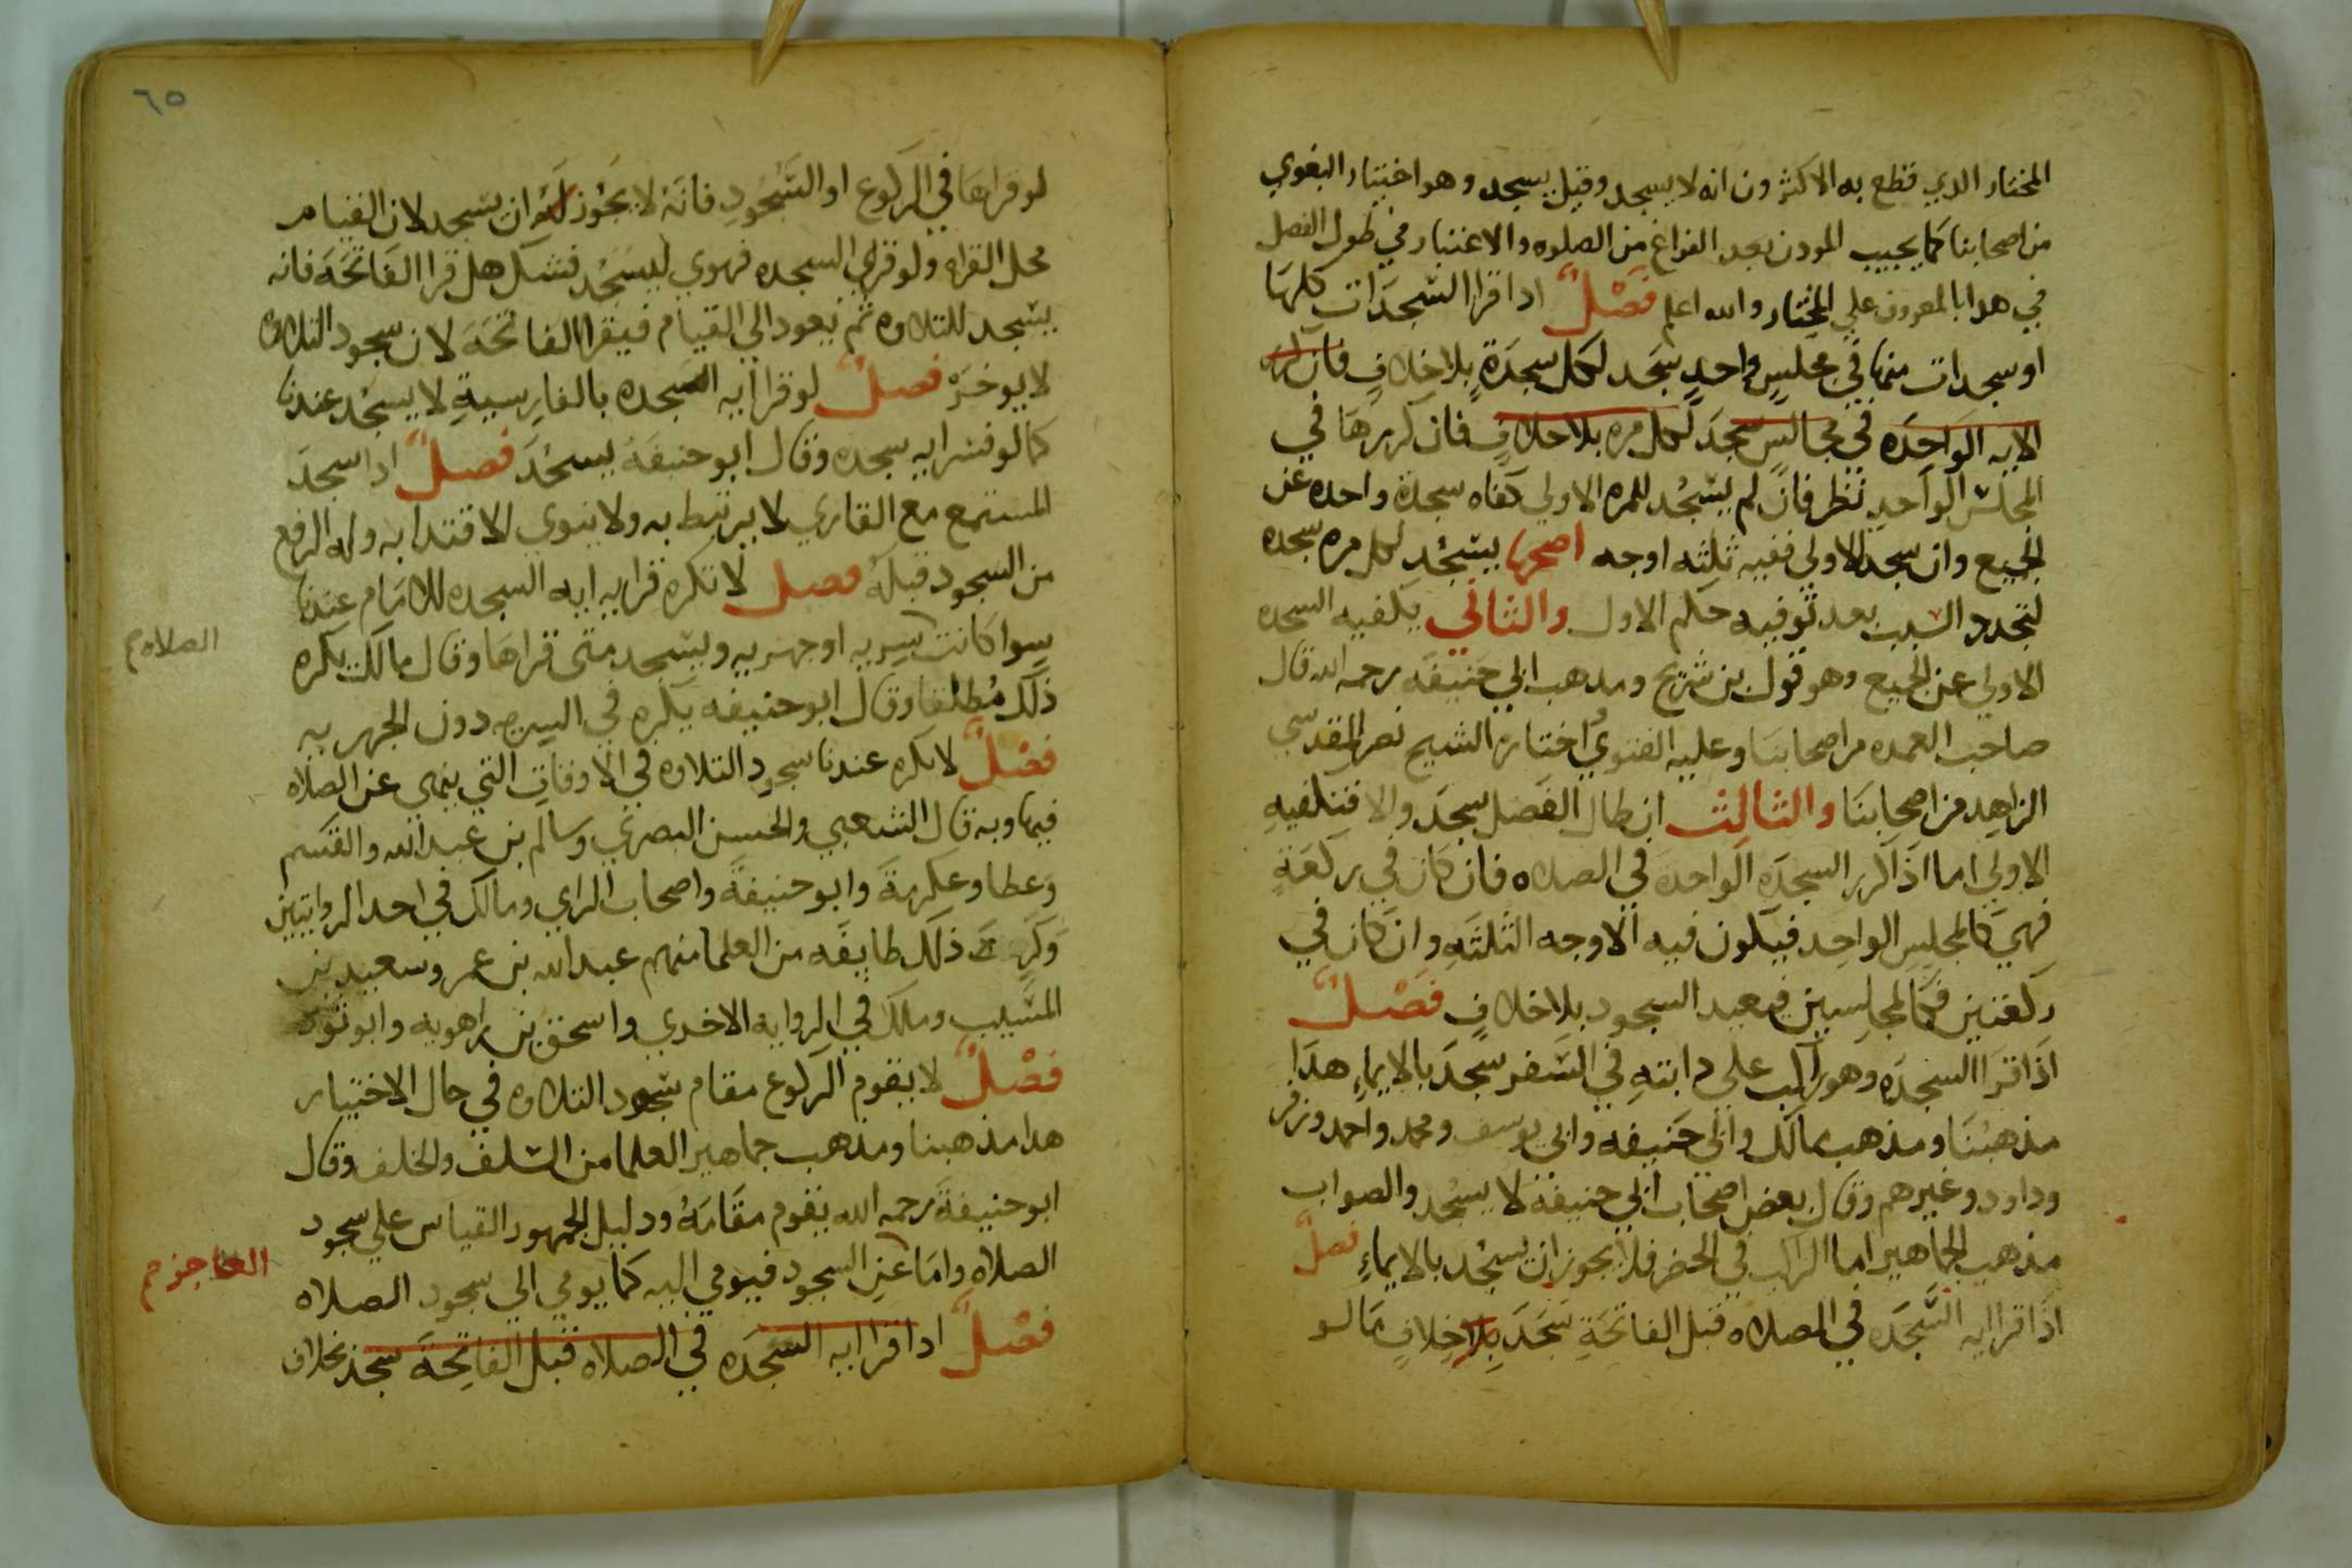 المختار الدي قطع به الاكثرون انه لا يسجد وقيل يسجد وهو اختيار البغوي
من اصحابنا كما يجيب المودن بعد الفراغ من الصلوه والاعتبار في طول الفصل
في هدا بالمعروف علي المختار والله اعلم فَصْلٌ ادا قرا السَّجَدَات كلهَا
او سجدات منها في مجلسٍ واحدٍ سَجَد لكل سجدَةٍ بلا خلافٍ فان كرر
الايه الوَاحِدَه في مجالسٍ سَجَدَ لكل مره بلا خلافٍ فان كررهَا في
المجلسِ الوَاحدِ نظر فان لم يَسْجُد للمره الاولي كفاه سجدة واحده عن
الجميع وان سجد للاولي ففيه ثلثه اوجه اصحها يَسْجُد لكل مره سجده
لتجدد السبب بعد توفيه حكم الاول والثاني يكفيه السجده
الاولي عن الجميع وهو قول بن شريح ومدهب ابي حَنيفَه رحمه الله قال
صاحب العمده من اصحابنا وعليه الفتوي اختاره الشيح نصر المقدسي
الزاهِد من اصحابنَا والثالث ان طال الفَصل سجَد والا فتكفيهِ
الاولي اما اذا كرر السجدَه الواحدَة في الصلاه فان كَان في ركعَةٍ
فهيَ كالمجلِسِ الواحِد فيكون فيه الاوجه الثلثَهِ وان كان في
ركعتين فكَالمجلِسين فيعيد السجود بلا خلافٍ فَصْلٌ
اذَا قرَا السجدَه وهو راكب على دابتهِ في السَّفر سجَدَ بالايماءِ هدَا
مذهبُنَا ومذهب مالك وابي حَنيفه وابي يوسف ومحمد واحمد وزفر
وداود وغيرهم وقال بعض اصحاب ابي حنيفة لا يسجُد والصواب
مذهب الجماهير اما الراكب في الحضر فلا يجوز ان يسجُد بالايماءِ فصلٌ
اذَا قرا ايه السَّجدَه في الصلاه قبل الفاتحَةِ سَجَدَ بلا خِلافٍ بمَا لو
٦٥
لو قراهَا في الركوع او السُّجُودِ فانهُ لا يَجُوز لَهُ ان يسجد لان القيام
محل القراه ولو قراي السجده فهوي ليسجُد فشك هل قرا الفَاتحَةَ فانه
يسجد للتلاوه ثم يعود الي القيام فيقرا الفاتحَةَ لان سجود التلاوة
لا يوخرْ فصلٌ لو قرا ايه السجده بالفارِسيةِ لا يسجُد عندنا
كما لو فسر ايه سجده وقال ابو حنيفَة يسجُدَ فصلٌ ادا سجدَ
المستمع مع القاري لا يرتبط به ولا ينوي الاقتدا به وله الرفع
من السجود قبلهُ فصل لا تكره قرايه ايه السجده للامَام عندنا
سوا كانت سريه او جهريه ويسجد متى قراهَا وقال مالك يكره
الصلاه م
ذلك مُطلقا وقال ابو حنيفه يكره في السريه دون الجهريه
فصْلٌ لا يكره عندنا سجود التلاوه في الاوقات التي ينهي عن الصلاه
فيها وبه قال الشعبي والحسن البصري وسالم بن عبد الله والقسم
وَعطا وعكرمَة وابو حنيفةَ واصحاب الراي ومالك في احد الروايتين
وَكرِهَ ذلك طايفَه من العلما منهم عبد الله بن عمر وسعيد بن
المسيبِ ومالك في الروايه الاخري واسحق بن راهويه وابو ثور
فصْلٌ لا يقوم الركوع مقام سجود التلاوه في حال الاختيار
هدا مذهبنا ومذهب جماهير العلما من السلف والخلف وقال
ابو حنيفةَ رحمه الله يقوم مقَامَهُ ودليل الجمهور القياس علي سجود
الصلاهِ وامَا عنِ السجود فيومي اليه كما يومي الي سجود الصلاه
العاجز م
فصْلٌ ادا قرا ايه السَّجدَه في الصلاه قبل الفاتِحَةَ سجد بخلاف